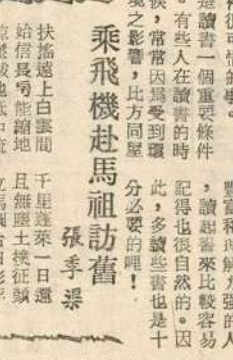 是讀書一個重要條件
。有些人在讀書的時
候，常常因為受到環
境之影響，比方同屋
豐富和理解力強的人
，讀起書來比較容易
記得也很自然的。因
此，多讀些書也是十
分必要的哩！
乘飛機赴馬祖訪舊
張季渠
扶搖遠上白雲間　千里蓬來一日還
始信長房能縮地　且無塵土撲征顏